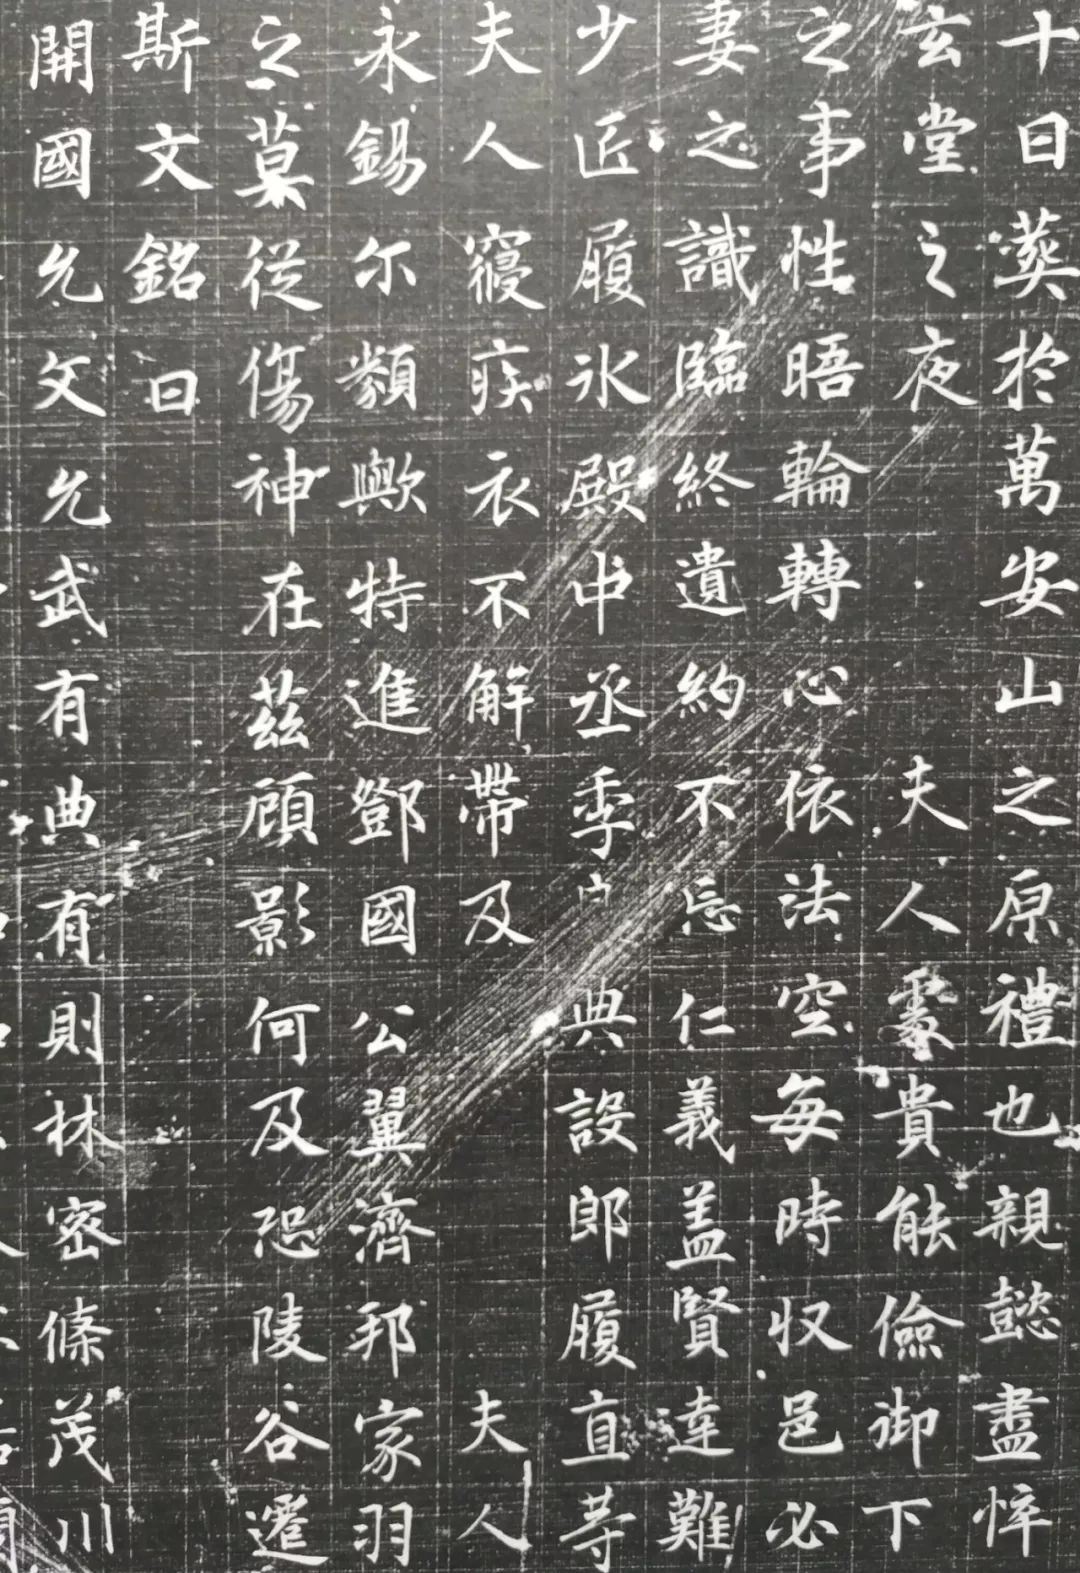 十日葬於萬安山之原禮也親懿盡悴
玄堂之夜 夫人處貴能儉御下
之事性晤輪轉心依法空每時収邑必
妻之識臨終遺約不忘仁義盖賢達難
少匠履氷殿中丞季户典設郎履直等
夫人寢疾衣不解帶及 夫人
永錫尓類歟特進鄧國公翼濟邦家羽
之莫從傷神在茲顧影何及恐陵谷遷
斯文銘曰
開國允文允武有典有則林密條茂川